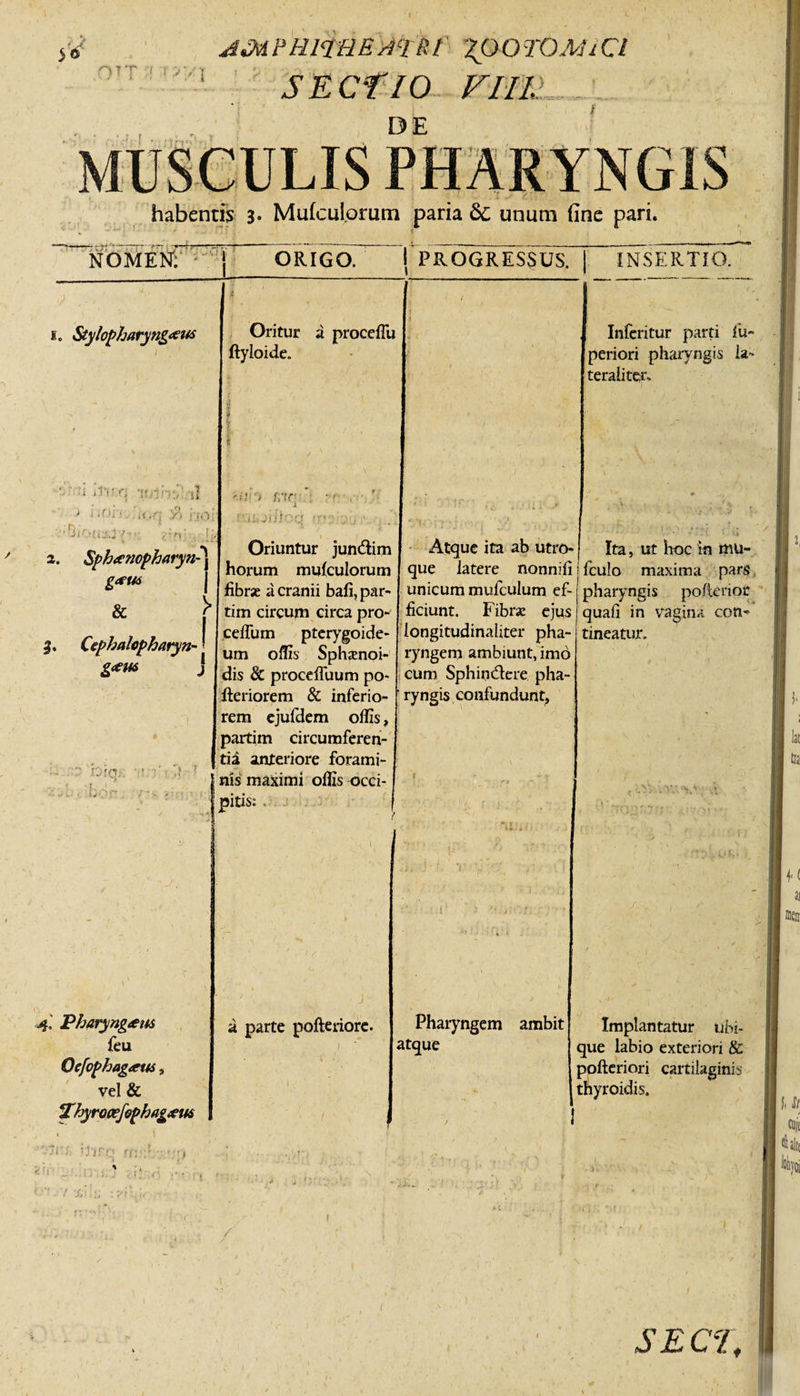 56 AMPHITHEATRI ZOOTOMICI
SECTIO VIII.
DE
MUSCULIS PHARYNGIS
habentis 3. Muſculorum paria & unum ſine pari.
NOMEN. | ORIGO. | PROGRESSUS. | INSERTIO.
1. Stylopharyngæus
Oritur à proceſſu
ſtyloide.
Inſeritur parti ſu-
periori pharyngis la-
teraliter.
2. Sphænopharyn-
gæus
&
3. Cephalopharyn-
gæus
Oriuntur junctim
horum muſculorum
fibræ à cranii baſi, par-
tim circum circa pro-
ceſſum pterygoide-
um oſſis Sphænoi-
dis & proceſſuum po-
ſteriorem & inferio-
rem ejuſdem oſſis,
partim circumferen-
tiâ anteriore forami-
nis maximi oſſis occi-
pitis:
Atque ita ab utro-
que latere nonniſi
unicum muſculum ef-
ficiunt. Fibræ ejus
longitudinaliter pha-
ryngem ambiunt, imò
cum Sphinctere pha-
ryngis confundunt,
Ita, ut hoc in mu-
ſculo maxima pars
pharyngis poſterior
quaſi in vaginâ con-
tineatur.
4. Pharyngæus
ſeu
Oeſophagæus,
vel &
Thyroœſophagæus
à parte poſteriore.
Pharyngem ambit
atque
Implantatur ubi-
que labio exteriori &
poſteriori cartilaginis
thyroidis.
SECT.